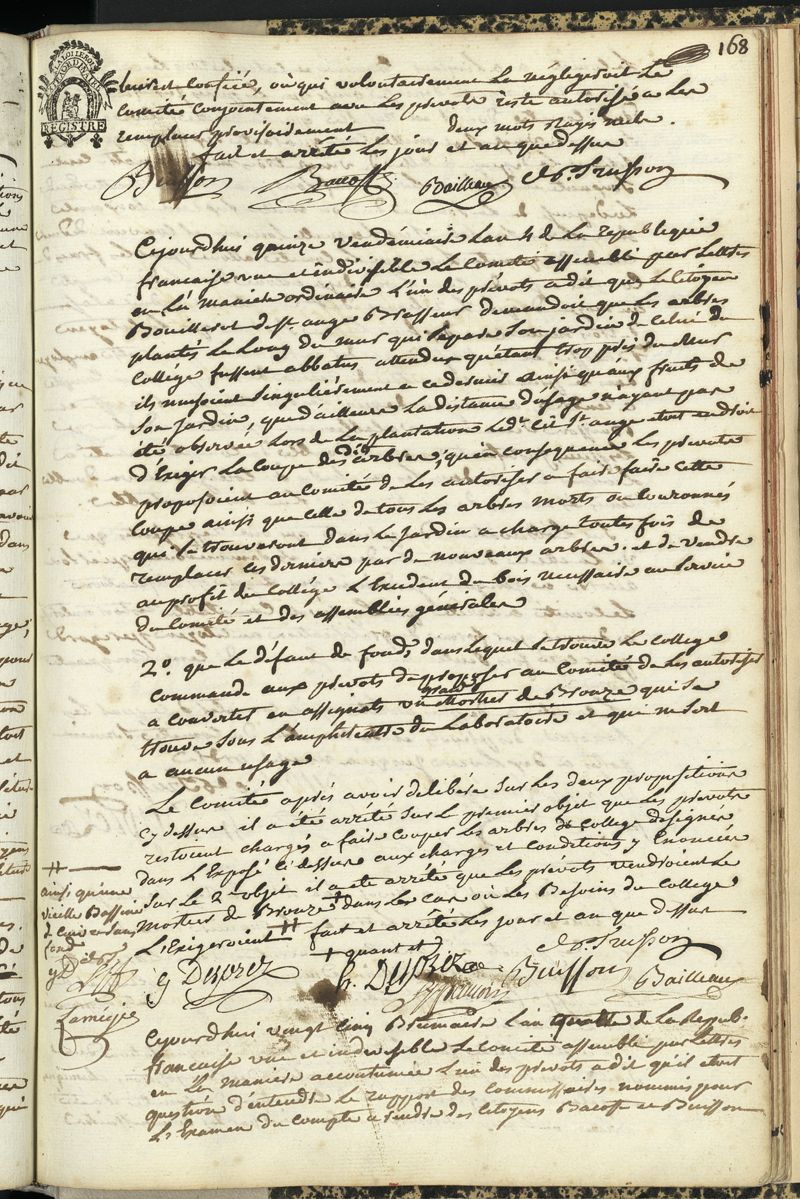 168
LA LOI LE ROI
REGISTRE
confiée, où qui volontairement la négligeroit Le
Comité conjointement avec Les prevots reste autorisé a Les
remplacer provisoirement deux mots rayés nuls.
fait et arrêté Les jour et an que dessus
Buisson Bacoffe Bailleau Trusson
Cejourdhui quinze vendémiaire L'an 4 de La republique
francaise une et indivisible Le Comité assemblé par Lettres
en La maniere ordinaire L'un des prévots a dit que Le Citoyen
Bouilleret de St. ange Brasseur demandoit que Les arbres
plantés Le Long du mur qui separe Son jardin de Celui du
College fussent abbatus attendu qu'étant trop près du Mur
ils nuisoient Singulièrement a ce dernier ainsi qu'aux fruits de
Son Jardin, que d'ailleurs La distance d'usage n'ayant pas
été observée Lors de La plantation Led. Cit. St. ange etoit en droit
d'Exiger La Coupe des d. arbres; qu'en consequence Les prevots
proposoient au Comité de Les autoriser a fair faire cette
Coupe ainsi que celle de tous Les arbres morts ou Couronnés
qui Se trouveront dans Le Jardin a charge toutes fois de
remplacer ces derniers par de nouveaux arbres. et de vendre
au profit du College L'Excedent du bois necessaire au Service
du Comité et des assemblées générales
2°. que Le défaut de fonds dans Lequel Se trouve Le College
Commande aux prevots de proposer au Comité de Les autoriser
a convertir en assignats un grand mortier de Bronze qui Se
trouve Sous L'amphiteatre du Laboratoire et qui ne Sert
a aucun usage
Le Comité après avoir delibéré Sur Les deux propositions
cy dessus il a été arrêté Sur Le premier objet que Les prevots
restoient chargés a faire couper Les arbres du College designés
dans L'Exposé Ci dessus aux charges et conditions y Enoncées
Sur Le 2e objet il a été arrêté que Les prévots vendroient Le
mortier de Bronze + dans Les cas où Les Besoins du College
L'Exigeroient ++ fait et arrêté Les jour et an que dessus
++
ainsi qu'une
vieille Bassine
de Cuivre Sans
fond
+ quant et
Trusson
Buisson Bailleau
Cejourdhui vingt Cinq Brumaire L'an quatre de La Repub.
francaise une et indivisible Le Comité assemblé par Lettres
en La maniere accoutumée L'un des prevots a dit qu'il etoit
question d'entendre Le rapport des Commissaires nommés pour
L'Examen du Compte a rendre des Citoyens Bacoffe et Buisson